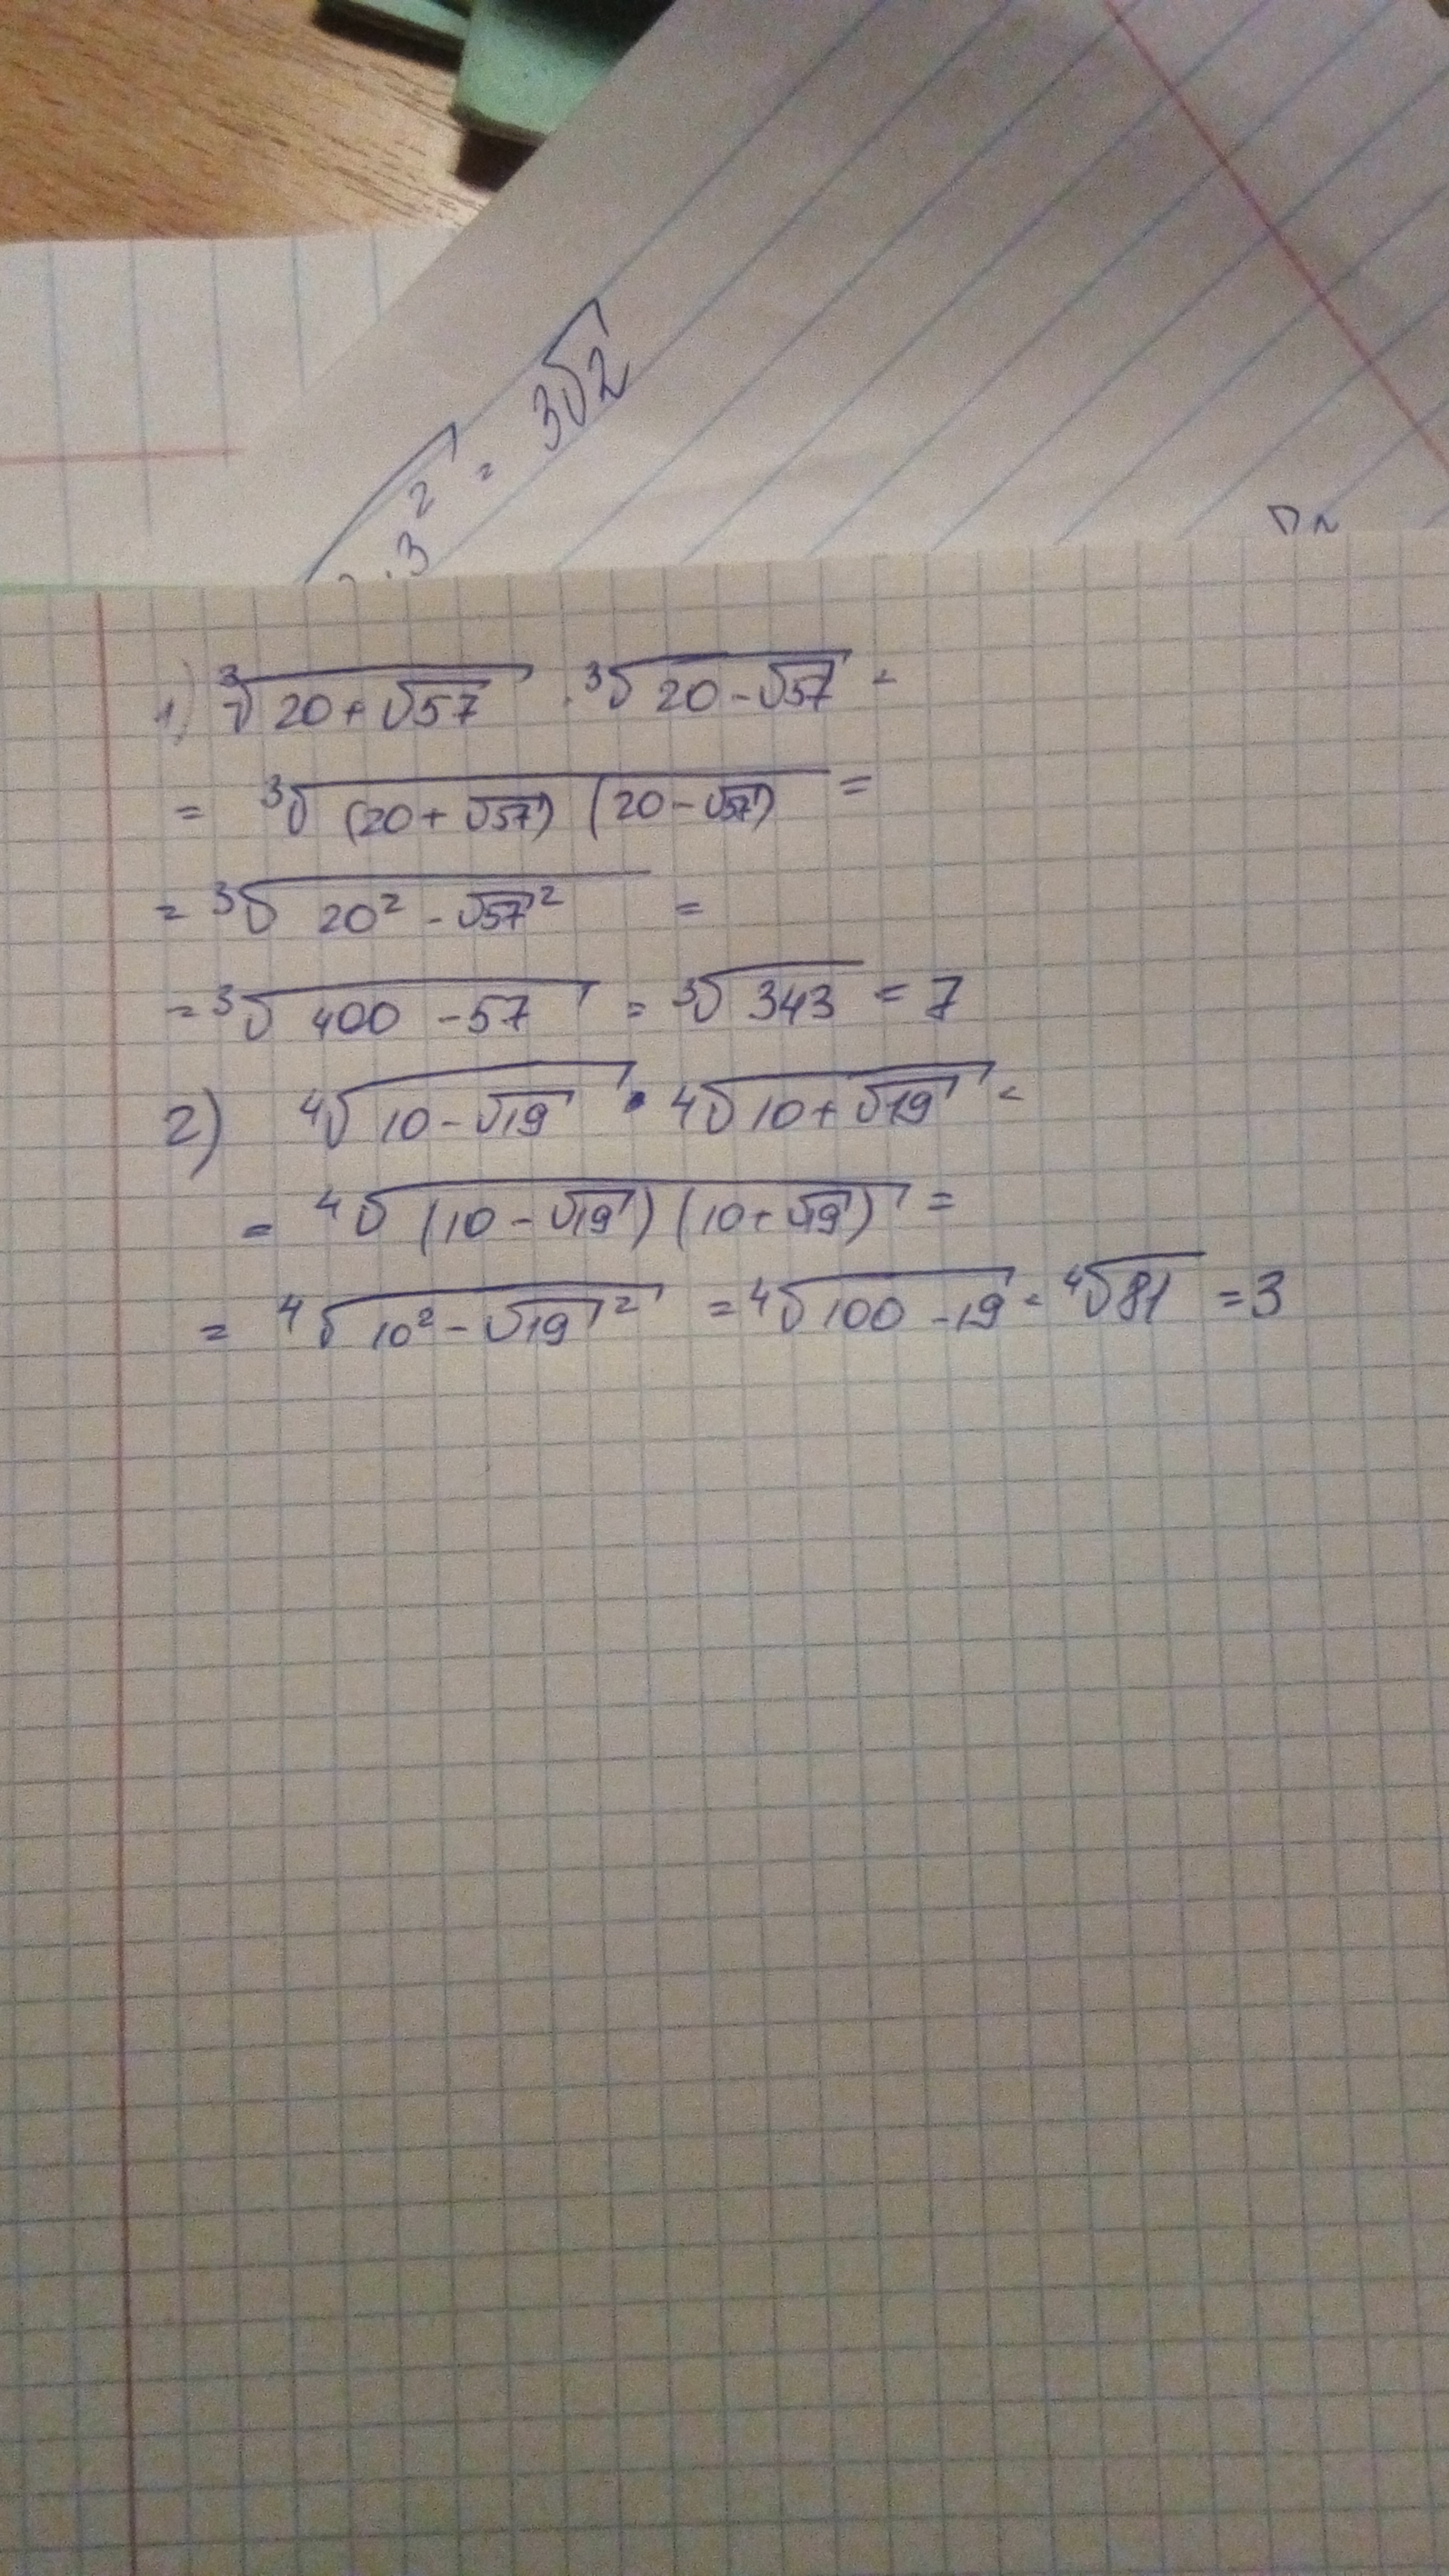 3² = 3√2
1) ³√(20+√57) · ³√(20-√57) =
= ³√((20+√57)(20-√57)) =
= ³√(20² - √57²) =
= ³√(400 - 57) = ³√343 = 7
2) ⁴√(10-√19) · ⁴√(10+√19) =
= ⁴√((10-√19)(10+√19)) =
= ⁴√(10² - √19²) = ⁴√(100 - 19) = ⁴√81 = 3